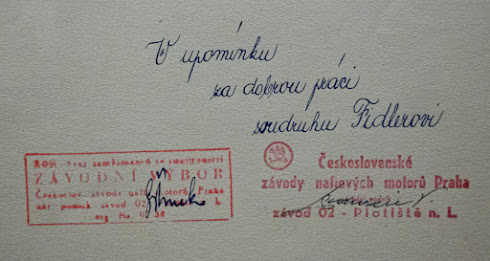 V upomínku
za dobrou práci
soudruhu Fidlerovi
ROH - Svaz zaměstnanců ve strojírenství
ZÁVODNÍ VÝBOR
Českoslov. závody naft. motorů Praha
nár. podnik - závod 02 L.
Československé
závody naftových motorů Praha
závod 02 - Plotiště n. L.